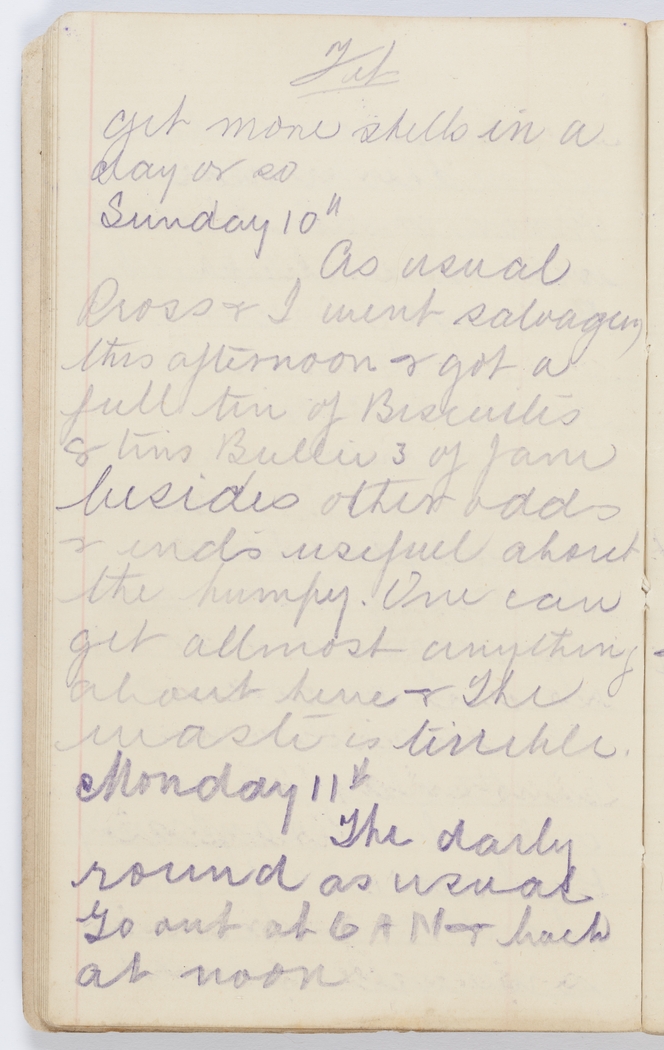 Feb
get more shells in a
day or so
Sunday 10th
As usual
Ross & I went salvaging
this afternoon & got a
full tin of Biscuits
& tins 3 of Jam
besides other odds
& ends usefuel about
the humpy. One can
get allmost anything
about here & The
waste is terrible.
Monday 11th
The daily
round as usual
Go out at 6 A M & back
at noon